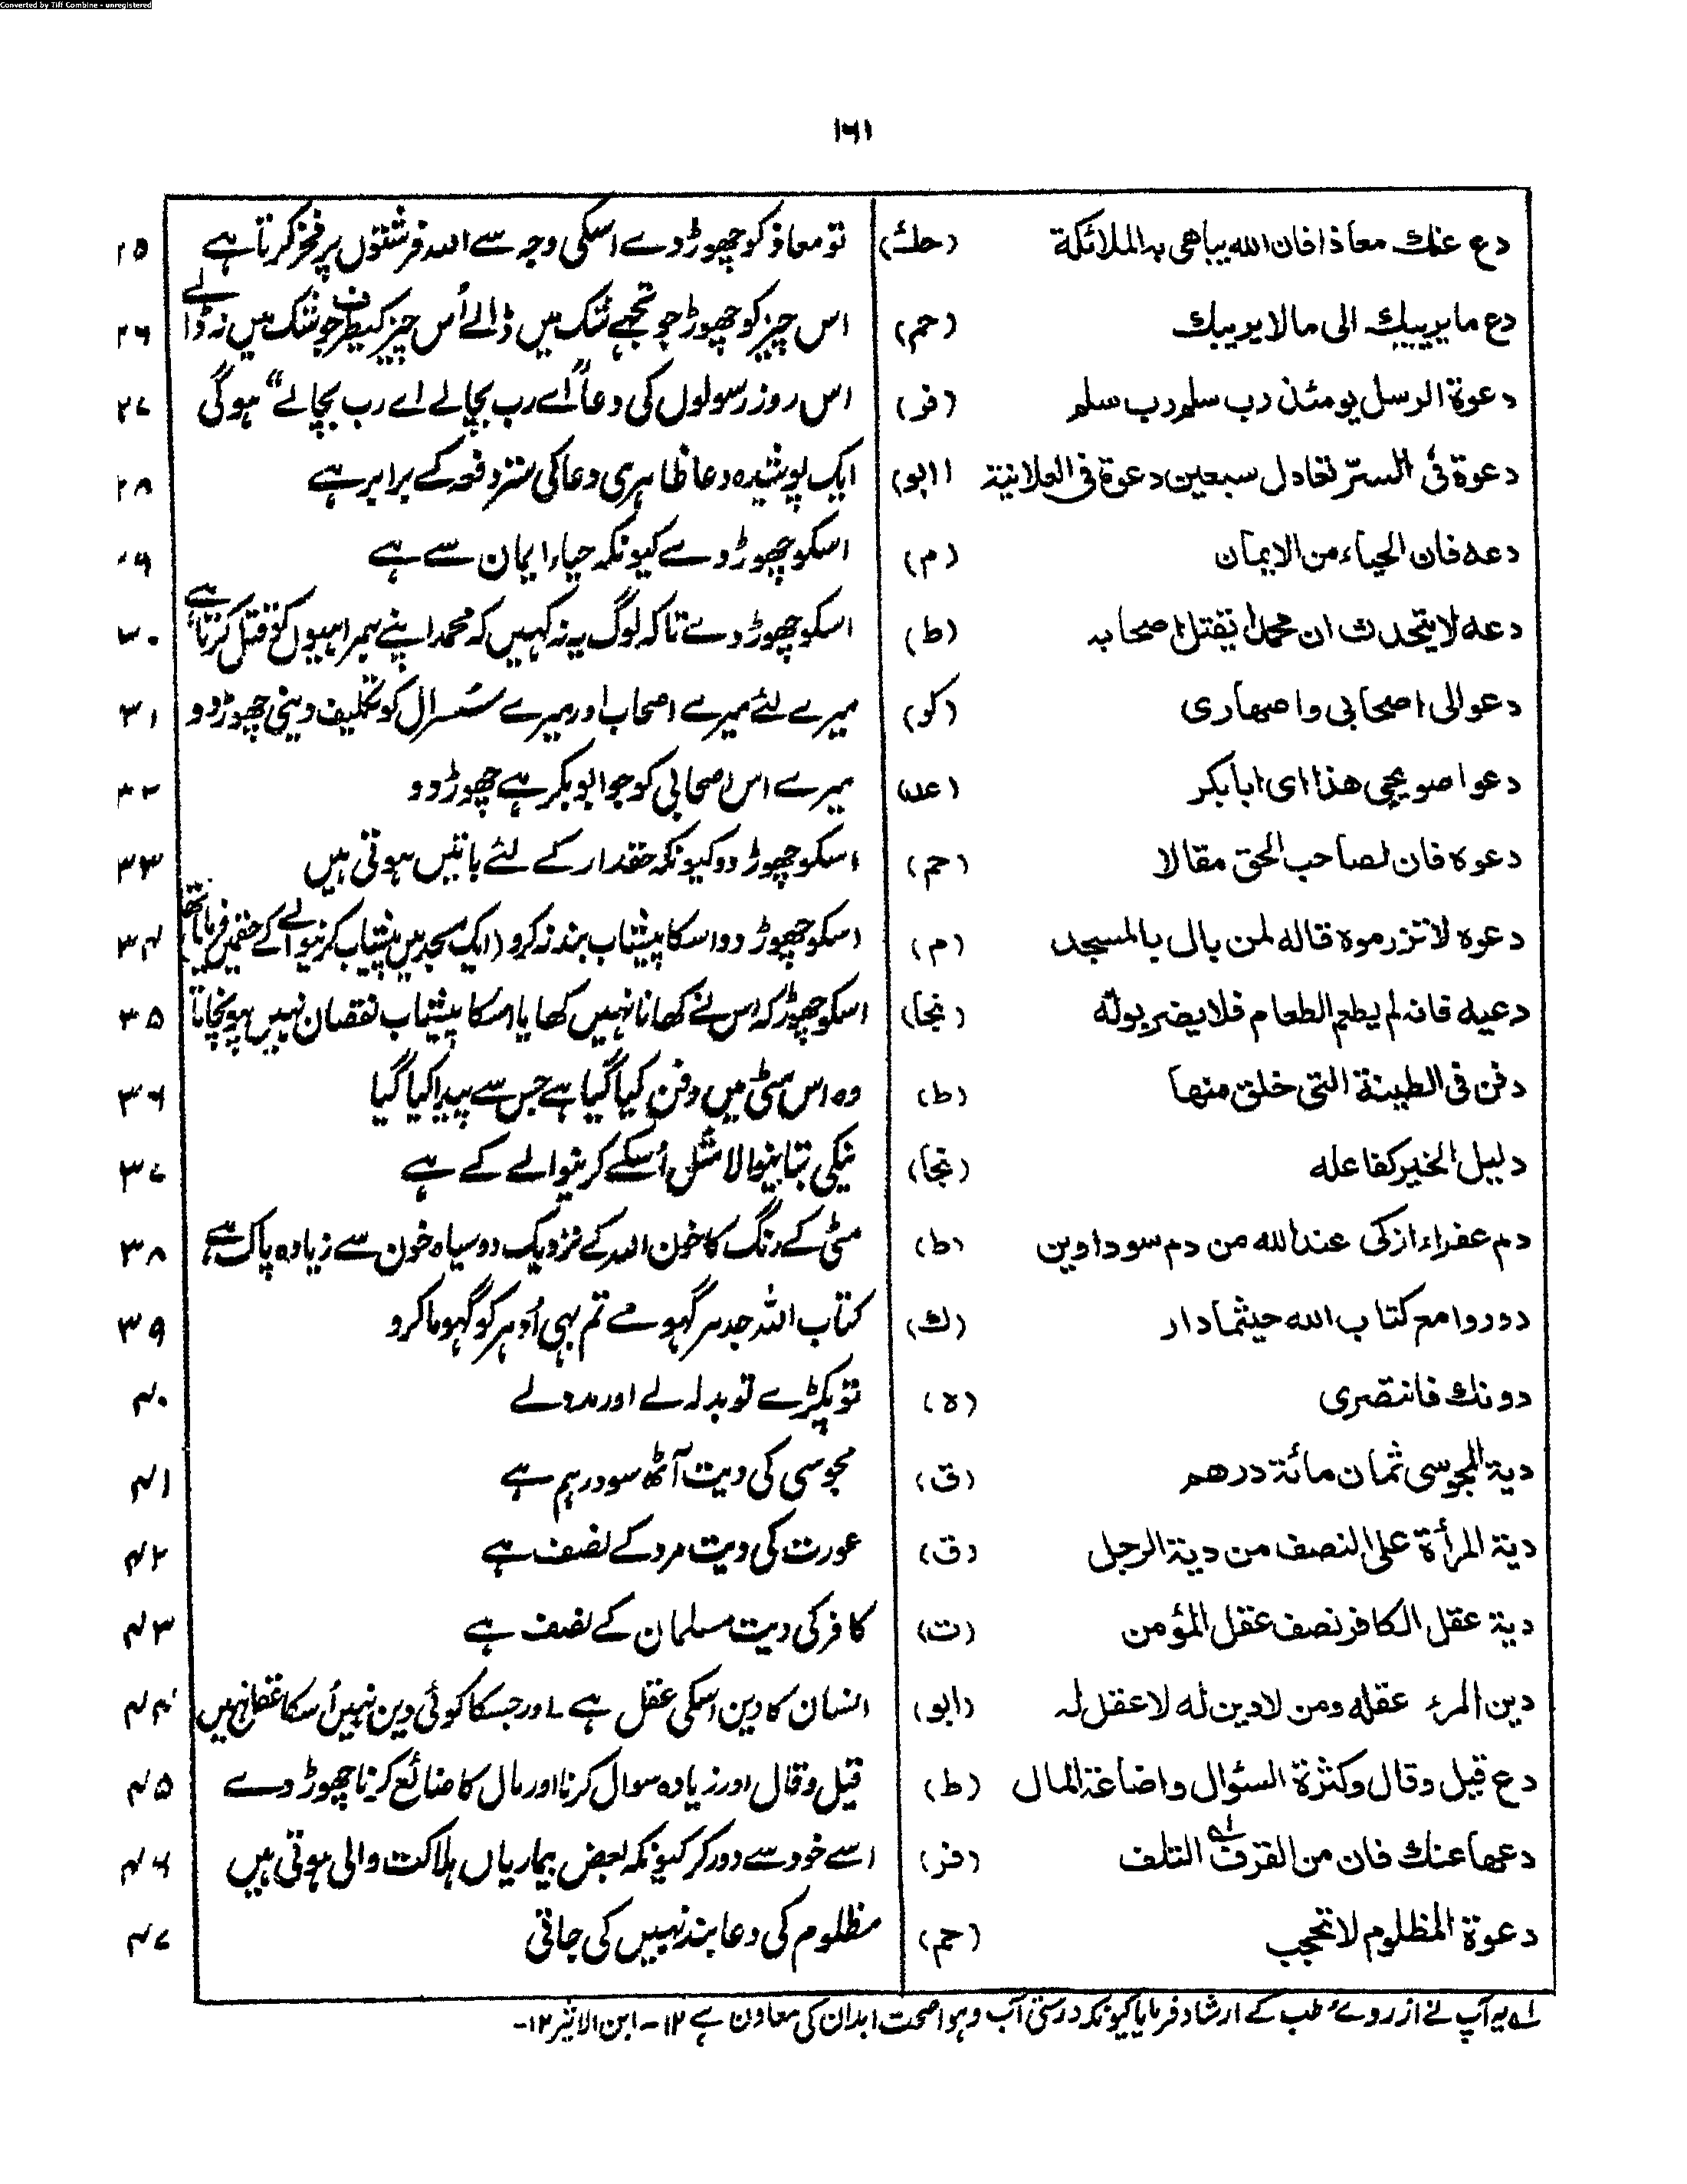 Converted by Tiff Combine - unregistered
۱۶۱
دع عنك معاذا فان الله يباهی به الملائكة (حك) تو معاذ کو چھوڑ دے اسکی وجہ سے اللہ فرشتوں پر فخر کرتا ہے ۲۵
دع ما يريبك الى ما لا يريبك (حم) اس چیز کو چھوڑ جو تجھے شک میں ڈالے اُس چیز کیطرف جو شک میں نہ ڈالے ۲۶
دعوة الرسل يومئذ رب سلم رب سلم (فر) اس روز رسولوں کی دعا "اے رب بچالے اے رب بچالے" ہوگی ۲۷
دعوة فی السرّ تعادل سبعين دعوة فی العلانية (ابو) ایک پوشیدہ دعا ظاہری دعا کی ستر دفعہ کے برابر ہے ۲۸
دعه فان الحياء من الايمان (م) اسکو چھوڑ دے کیونکہ حیاء ایمان سے ہے ۲۹
دعه لا يتحدث ان محمدا يقتل اصحابه (ط) اسکو چھوڑ دے تاکہ لوگ یہ نہ کہیں کہ محمد اپنے ہمراہیوں کو قتل کرتا ہے ۳۰
دعوا لی اصحابی واصهاری (کو) میرے لئے میرے اصحاب اور میرے سُسرال کو تکلیف دینی چھوڑ دو ۳۱
دعوا صويحبی هذا ای ابا بكر (عد) میرے اس اصحابی کو جو ابو بکر ہے چھوڑ دو ۳۲
دعوه فان لصاحب الحق مقالا (حم) اسکو چھوڑ دو کیونکہ حقدار کے لئے باتیں ہوتی ہیں ۳۳
دعوه لا تزرموه قاله لمن بال بالمسجد (م) اسکو چھوڑ دو اسکا پیشاب بند نہ کرو (ایک مسجد میں پیشاب کرنیوالے کے حقمیں فرمایا تھا) ۳۴
دعيه فانه لم يطعم الطعام فلا يضر بوله (نجا) اسکو چھوڑ کہ اس نے کھانا نہیں کھایا اسکا پیشاب نقصان نہیں پہونچاتا ۳۵
دفن فی الطينة التی خلق منها (ط) وہ اس مٹی میں دفن کیا گیا ہے جس سے پیدا کیا گیا ۳۶
دليل الخير كفاعله (نجا) نیکی بتانیوالا مثل اُسکے کرنیوالے کے ہے ۳۷
دم عفراء ازكى عند الله من دم سوداوين (ط) مٹی کے رنگ کا خون اللہ کے نزدیک دو سیاہ خون سے زیادہ پاک ہے ۳۸
دوروا مع كتاب الله حيثما دار (ك) کتاب اللہ جدہر گہومے تم بہی اُدہر کو گہوما کرو ۳۹
دونك فانتصری (ه) تو پکڑے تو بدلہ لے اور مدد لے ۴۰
دية المجوسی ثمان مائة درهم (ق) مجوسی کی دیت آٹھ سو درہم ہے ۴۱
دية المرأة على النصف من دية الرجل (ق) عورت کی دیت مرد کے نصف ہے ۴۲
دية عقل الكافر نصف عقل المؤمن (ت) کافر کی دیت مسلمان کے نصف ہے ۴۳
دين المرء عقله ومن لا دين له لا عقل له (ابو) انسان کا دین اسکی عقل ہے۔ اور جسکا کوئی دین نہیں اُسکا عقل نہیں ۴۴
دع قيل وقال وكثرة السئوال واضاعة المال (ط) قیل و قال اور زیادہ سوال کرنا اور مال کا ضائع کرنا چھوڑ دے ۴۵
دعها عنك فان من القرف له التلف (فر) اسے خود سے دور کر کیونکہ بعض بیماریاں ہلاکت والی ہوتی ہیں ۴۶
دعوة المظلوم لا تحجب (حم) مظلوم کی دعا بند نہیں کی جاتی ۴۷
لہ یہ آپ نے از روے طب کے ارشاد فرمایا کیونکہ درستی آب و ہوا صحت ابدان کی معاون ہے ۱۲۔ ابن الاثیر ۱۲۔